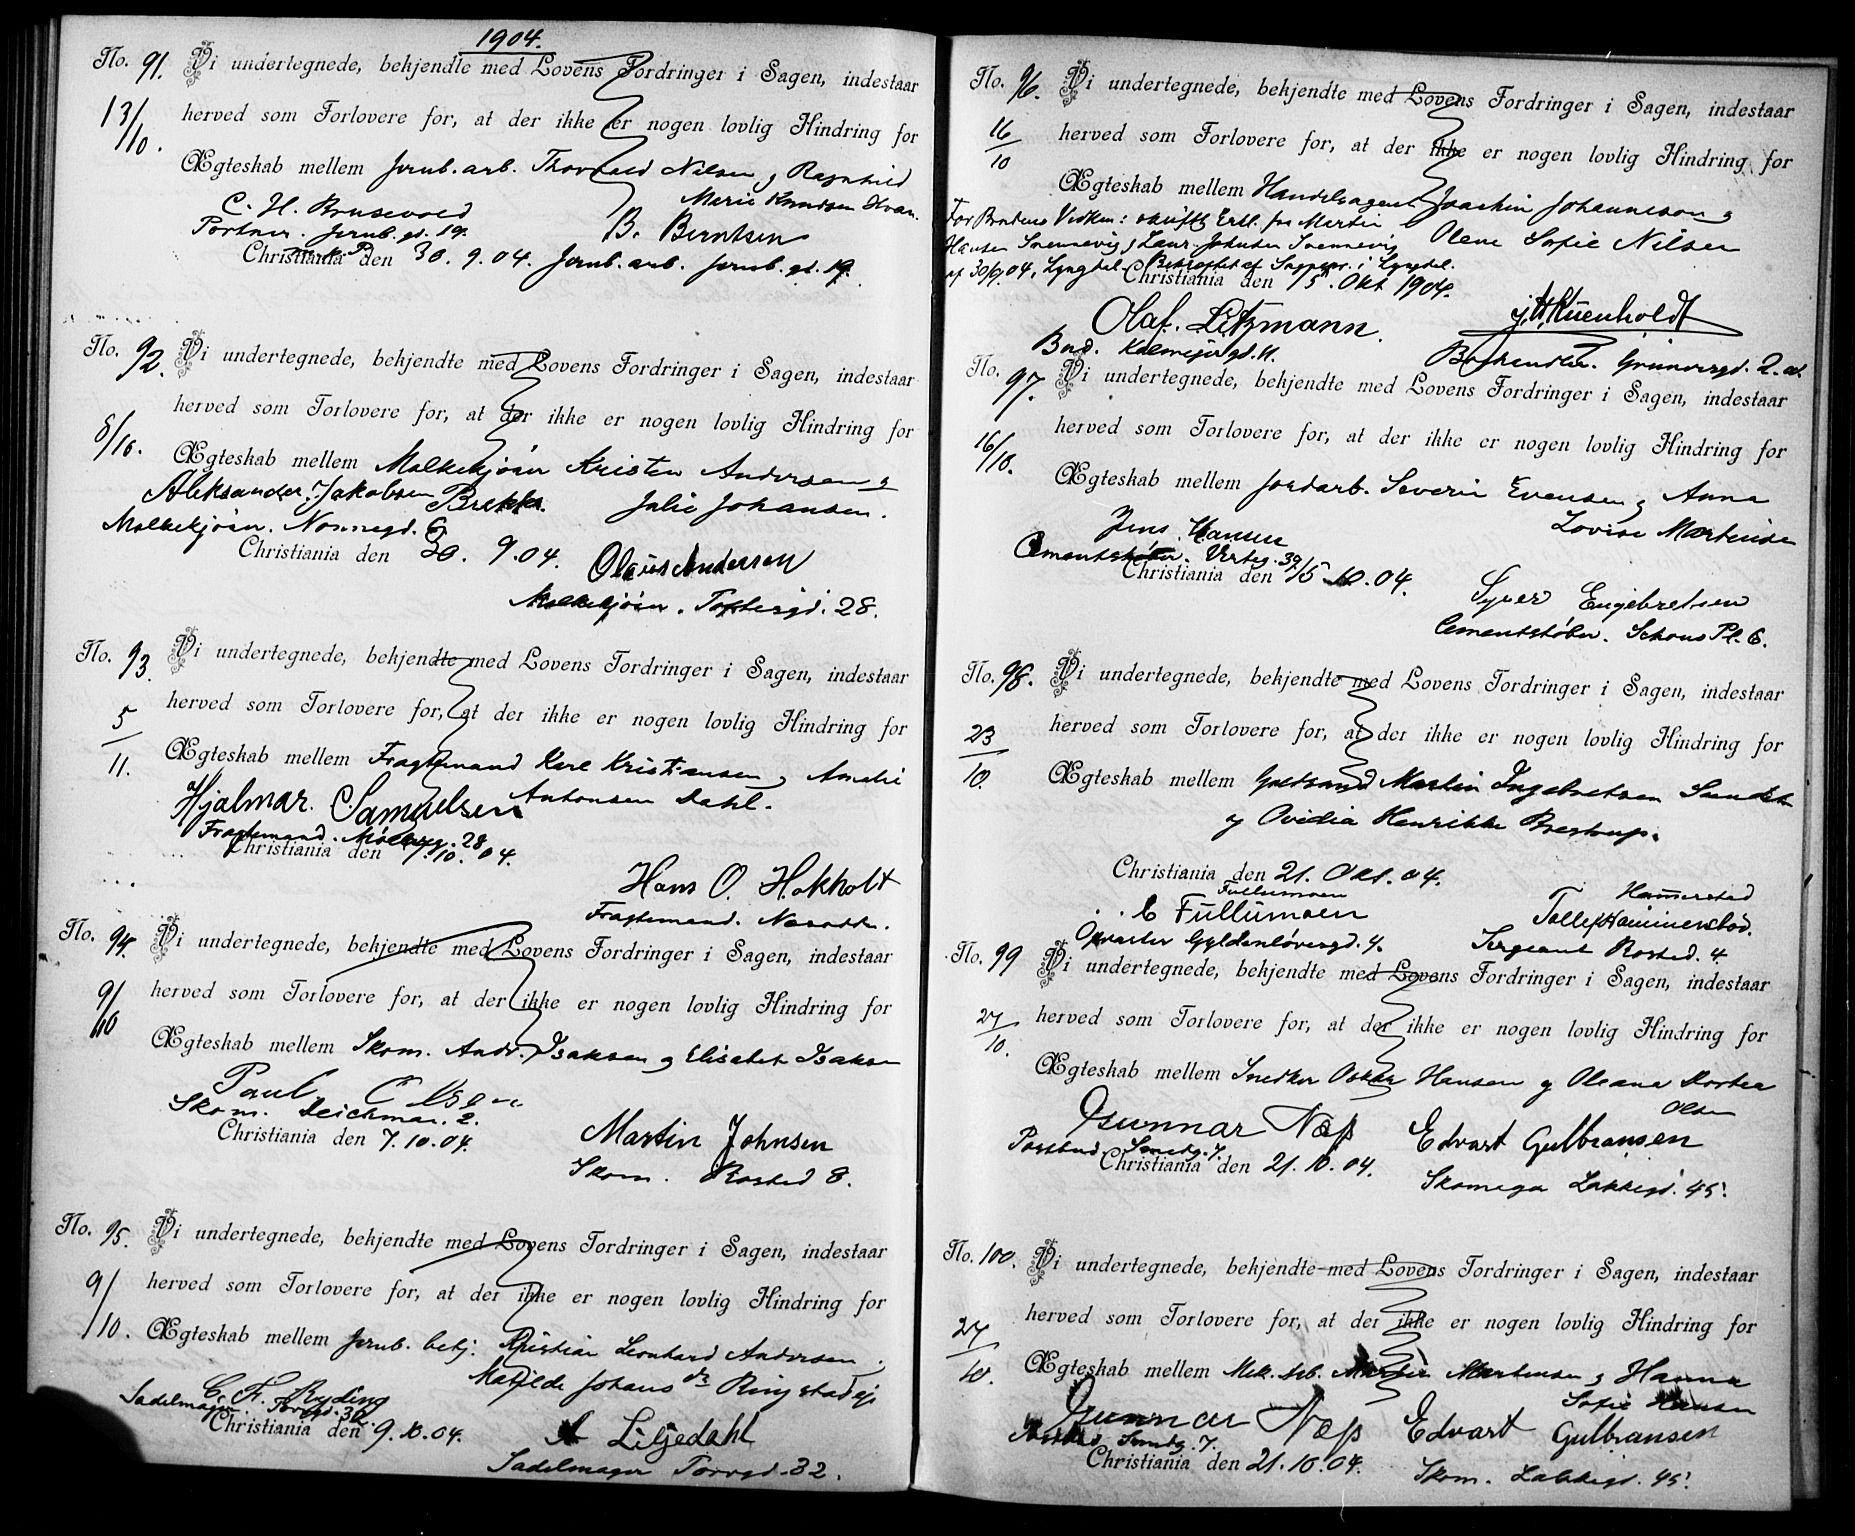 1904.
No. 91. Vi undertegnede, bekjendte med Lovens Fordringer i Sagen, indestaar
13/10. herved som Forlovere for, at der ikke er nogen lovlig Hindring for
Ægteskab mellem Jernb. arb. Thorvald Nilsen og Ragnhild
Marie Knudsen Hvam.
C. H. Brusevold B. Berntsen
Portner. Jernb. gd. 19.
Christiania den 30. 9. 04. Jernb. arb. Jernb. gd. 19.
No. 92. Vi undertegnede, bekjendte med Lovens Fordringer i Sagen, indestaar
8/10. herved som Forlovere for, at der ikke er nogen lovlig Hindring for
Ægteskab mellem Melkekjører Kristen Andersen og
Aleksander Jakobsen Brekke. Julie Johansen.
Melkekjører. Nonnegd. 6
Christiania den 30. 9. 04. Olaus Andersen
Melkekjører. Toftesgd. 28.
No. 93. Vi undertegnede, bekjendte med Lovens Fordringer i Sagen, indestaar
5/11. herved som Forlovere for, at der ikke er nogen lovlig Hindring for
Ægteskab mellem Fragtemand Karl Kristiansen og Amalie
Hjalmar. C. Samuelsen Antonsen Dahl.
Fragtemand. Mølleg. 28
Christiania den 7. 10. 04.
Hans O. Hokholt
Fragtemand.
No. 94. Vi undertegnede, bekjendte med Lovens Fordringer i Sagen, indestaar
9/10 herved som Forlovere for, at der ikke er nogen lovlig Hindring for
Ægteskab mellem Skom. Andr. Isaksen og Elisabet Isaksen
Paul Olsen
Skom. Deichman. 2.
Christiania den 7. 10. 04. Martin Johnsen
Skom. Rosted 8.
No. 95. Vi undertegnede, bekjendte med Lovens Fordringer i Sagen, indestaar
9/10. herved som Forlovere for, at der ikke er nogen lovlig Hindring for
Ægteskab mellem Jernb. betj. Kristian Leonhard Andersen
Matilde Johans dr Ringstadeje
C. F. Ryding
Sadelmager. Torvgd. 32.
Christiania den 9. 10. 04. A Liljedahl
Sadelmager Torvgd. 32.
No. 96. Vi undertegnede, bekjendte med Lovens Fordringer i Sagen, indestaar
16/10 herved som Forlovere for, at der ikke er nogen lovlig Hindring for
Ægteskab mellem Handelsagent Joachim Johannesson og
For Brudens Vedkom: skriftl Erkl. fra Martin Olene Sofie Nilsen
Hansen Svennevig og Laur. Johnsen Svennevig
af 30/9 04, Lyngdal. Bekræftet af Sognepr. i Lyngdal.
Christiania den 15 Okt 1904.
Olaf. Litzmann. J. H. Kuenholdt
Bud. Kalmejergd. 11. Boghandler. Grünersgd. 2.
No. 97. Vi undertegnede, bekjendte med Lovens Fordringer i Sagen, indestaar
16/10. herved som Forlovere for, at der ikke er nogen lovlig Hindring for
Ægteskab mellem Jordarb. Severin Evensen og Anna
Lovise Martinsen
Jens. Hansen
Cementstøber. Urteg. 39
Christiania den 15 10. 04. Syver Engebretsen
Cementstøber. Schous Pl. 6.
No. 98. Vi undertegnede, bekjendte med Lovens Fordringer i Sagen, indestaar
23/10. herved som Forlovere for, at der ikke er nogen lovlig Hindring for
Ægteskab mellem Martin Ingebretsen
og Ovidia Henrikke Brestrup.
Christiania den 21. Okt. 04.
Fullumoen Hammerstad
C Fullumoen Tollef Hammerstad.
Gyldenløvesgd. 4. Sergeant Rosted. 4
No. 99 Vi undertegnede, bekjendte med Lovens Fordringer i Sagen, indestaar
27/10. herved som Forlovere for, at der ikke er nogen lovlig Hindring for
Ægteskab mellem Snedker Oskar Hansen og Oleana Dortea
Olsen
Gunnar Næss Edvart Gulbransen
Postbud Smedg. 7.
Christiania den 21. 10. 04. Skomager Lakkegd. 45.
No. 100. Vi undertegnede, bekjendte med Lovens Fordringer i Sagen, indestaar
27/10. herved som Forlovere for, at der ikke er nogen lovlig Hindring for
Ægteskab mellem Mek. arb. Martin Martinsen og Hanna
Sofie Hansen
Gunnar Næss Edvart Gulbransen
Postbud Smedg. 7.
Christiania den 21. 10. 04. Skom. Lakkegd. 45.